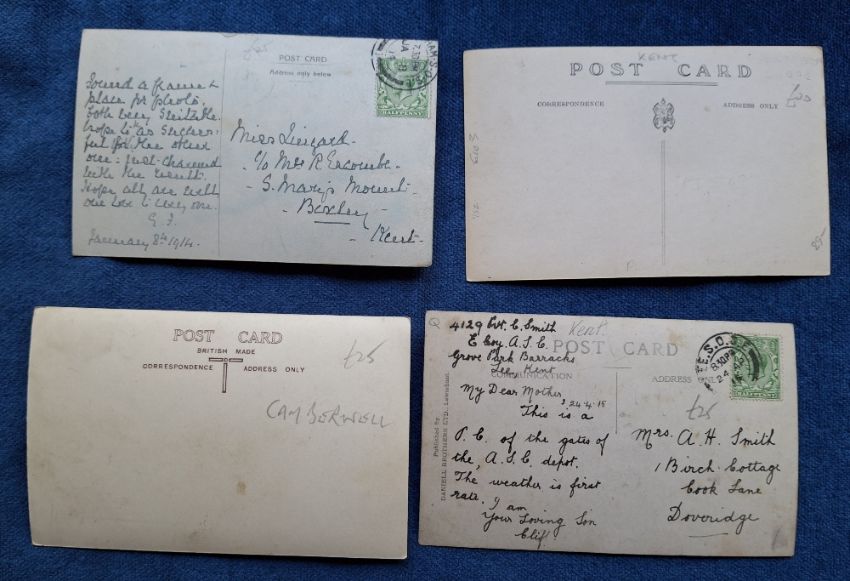 £25
POST CARD
Address only below
HALFPENNY
found a
place for photo.
both very suitable.
hope to as success-
ful for the other
one: just charmed
with the
Hope all are well
our love to every one.
January 8th 1914.
Miss
c/o Mrs R
S. Mary's Mount.
Boxley
Kent.
KENT
POST CARD
£20
CORRESPONDENCE
ADDRESS ONLY
POST CARD
BRITISH MADE
CORRESPONDENCE
ADDRESS ONLY
£25
CAMBERWELL
4129 Pvt. C. Smith
E Coy. A.S.C.
Grove Park Barracks
Lee, Kent
24-4-15
My Dear Mother,
This is a
P.C. of the gates of
the, A.S.C. depot.
The weather is first
rate. I am
Your Loving Son
Clif.
Kent.
POST CARD
COMMUNICATION
ADDRESS ONLY
Published by
DANIELL BROTHERS LTD. Lewisham.
£25
LEE.S.O.
8.30PM
24 AP
15
HALFPENNY
Mrs. A. H. Smith
1 Birch Cottage
Cook Lane
Doveridge